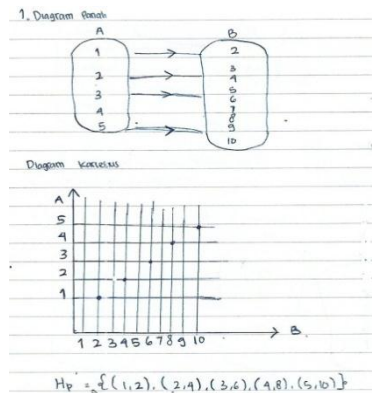 1. Diagram Panah
A B
1 2
3
2 4
5
3 6
7
4 8
5 9
10
Diagram Kartesius
A
5
4
3
2
1
1 2 3 4 5 6 7 8 9 10 B
Hp = {(1,2), (2,4), (3,6), (4,8), (5,10)}